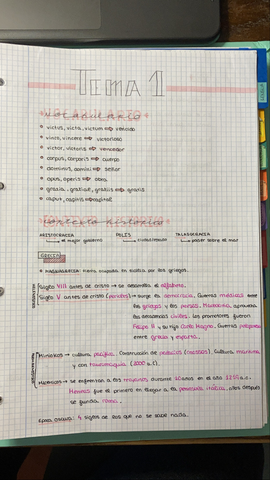 TEMA 1
vocabulario
victus, victa, victum ⇒ vencido
vinco, vincere ⇒ victorioso
victor, victoris ⇒ vencedor
corpus, corporis ⇒ cuerpo
dominus, domini ⇒ señor
opus, operis ⇒ obra
gratia, gratiae, gratiis ⇒ gratis
caput, capitis ⇒ capital
Contexto histórico
ARISTOCRACIA POLIS TALASOCRACIA
el mejor gobierno ciudad/estado poder sobre el mar
GRECIA
MAGNAGRECIA: tierra ocupada en Sicilia por los griegos.
Siglo VIII antes de cristo → se desarrolla el alfabeto.
Siglo V antes de cristo (Pericles) → surge la democracia, Guerras médicas entre
los griegos y los persas.
las decisiones civiles. los prometeros fueron
Felipe II y su hijo Carlo Magno. Guerras
entre Grecia y Esparta.
Minoicos → cultura pacífica. Construcción de palacios (cnossos). Cultura marítima
y con tauromaquia (2000 a.C).
Micénicos → se enfrentan a los troyanos durante 10 años en el año 1250 a.C.
Heracles fue el primero en llegar a la península itálica, años después
se funda roma.
Época oscura: 4 siglos de los que no se sabe nada.